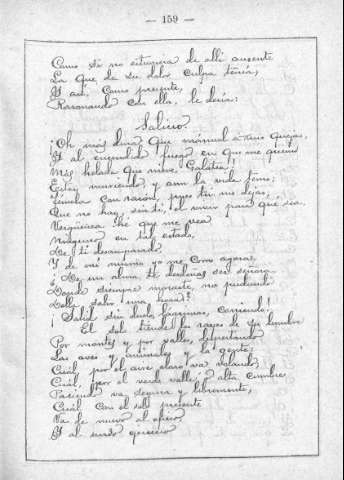 — 159 —
Como si no estuviera de allí ausente
La que de su dolor culpa tenía,
Y así, como presente,
Razonando con ella, le decía:
Salicio.
¡Oh más dura que mármol a mis quejas,
Y al encendido fuego en que me quemo
Más helada que nieve, Galatea!
Estoy muriendo, y aun la vida temo;
Témola con razón, pues tú me dejas;
Que no hay sin ti, el vivir para qué sea.
Vergüenza hé que me vea
Ninguno en tal estado,
De ti desamparado
Y de mí mismo yo me corro agora.
¿De un alma te desdeñas ser señora
Donde siempre moraste, no pudiendo
Della salir una hora?
¡Salid sin duelo lágrimas, corriendo!
El sol tiende los rayos de su lumbre
Por montes y por valles, despertando
Las aves y animales y la gente:
Cuál por el aire claro va volando,
Cuál, por el verde valle o alta cumbre
Paciendo va segura y libremente,
Cuál con el sol presente
Va de nuevo al oficio
Y al usado ejercicio